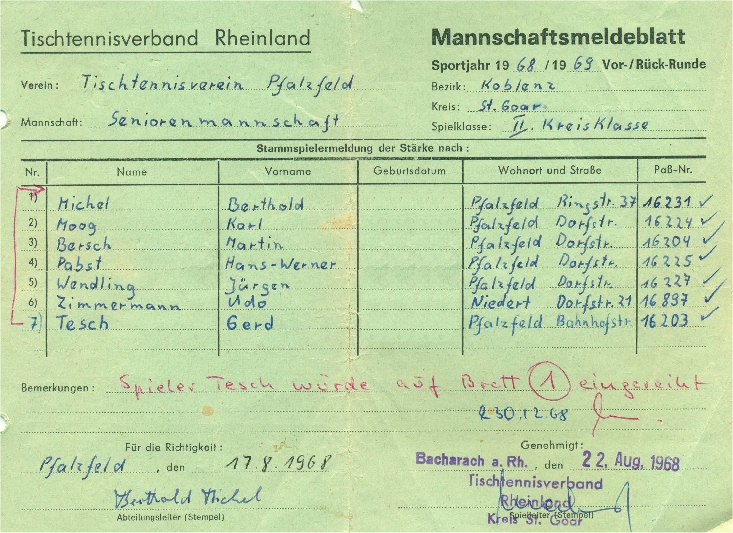 Tischtennisverband Rheinland
Mannschaftsmeldeblatt
Sportjahr 1968 / 1969 Vor-/Rück-Runde
Verein: Tischtennisverein Pfalzfeld
Bezirk: Koblenz
Kreis: St. Goar
Mannschaft: Seniorenmannschaft
Spielklasse: II. Kreisklasse
Stammspielermeldung der Stärke nach:
Nr. Name Vorname Geburtsdatum Wohnort und Straße Paß-Nr.
1) Michel Berthold Pfalzfeld Ringstr. 37 16231 ✓
2) Moog Karl Pfalzfeld Dorfstr. 16224 ✓
3) Bersch Martin Pfalzfeld Dorfstr. 16204 ✓
4) Pabst Hans-Werner Pfalzfeld Dorfstr. 16225 ✓
5) Wendling Jürgen Pfalzfeld Dorfstr. 16227 ✓
6) Zimmermann Udo Niedert Dorfstr. 21 16897 ✓
7) Tesch Gerd Pfalzfeld Bahnhofstr. 16203 ✓
Bemerkungen: Spieler Tesch würde auf Brett 1 eingereiht
30.12.68
Für die Richtigkeit:
Genehmigt:
Pfalzfeld, den 17.8.1968
Bacharach a. Rh., den 22. Aug. 1968
Tischtennisverband
Berthold Michel
Rheinland
Abteilungsleiter (Stempel)
Spielleiter (Stempel)
Kreis St. Goar